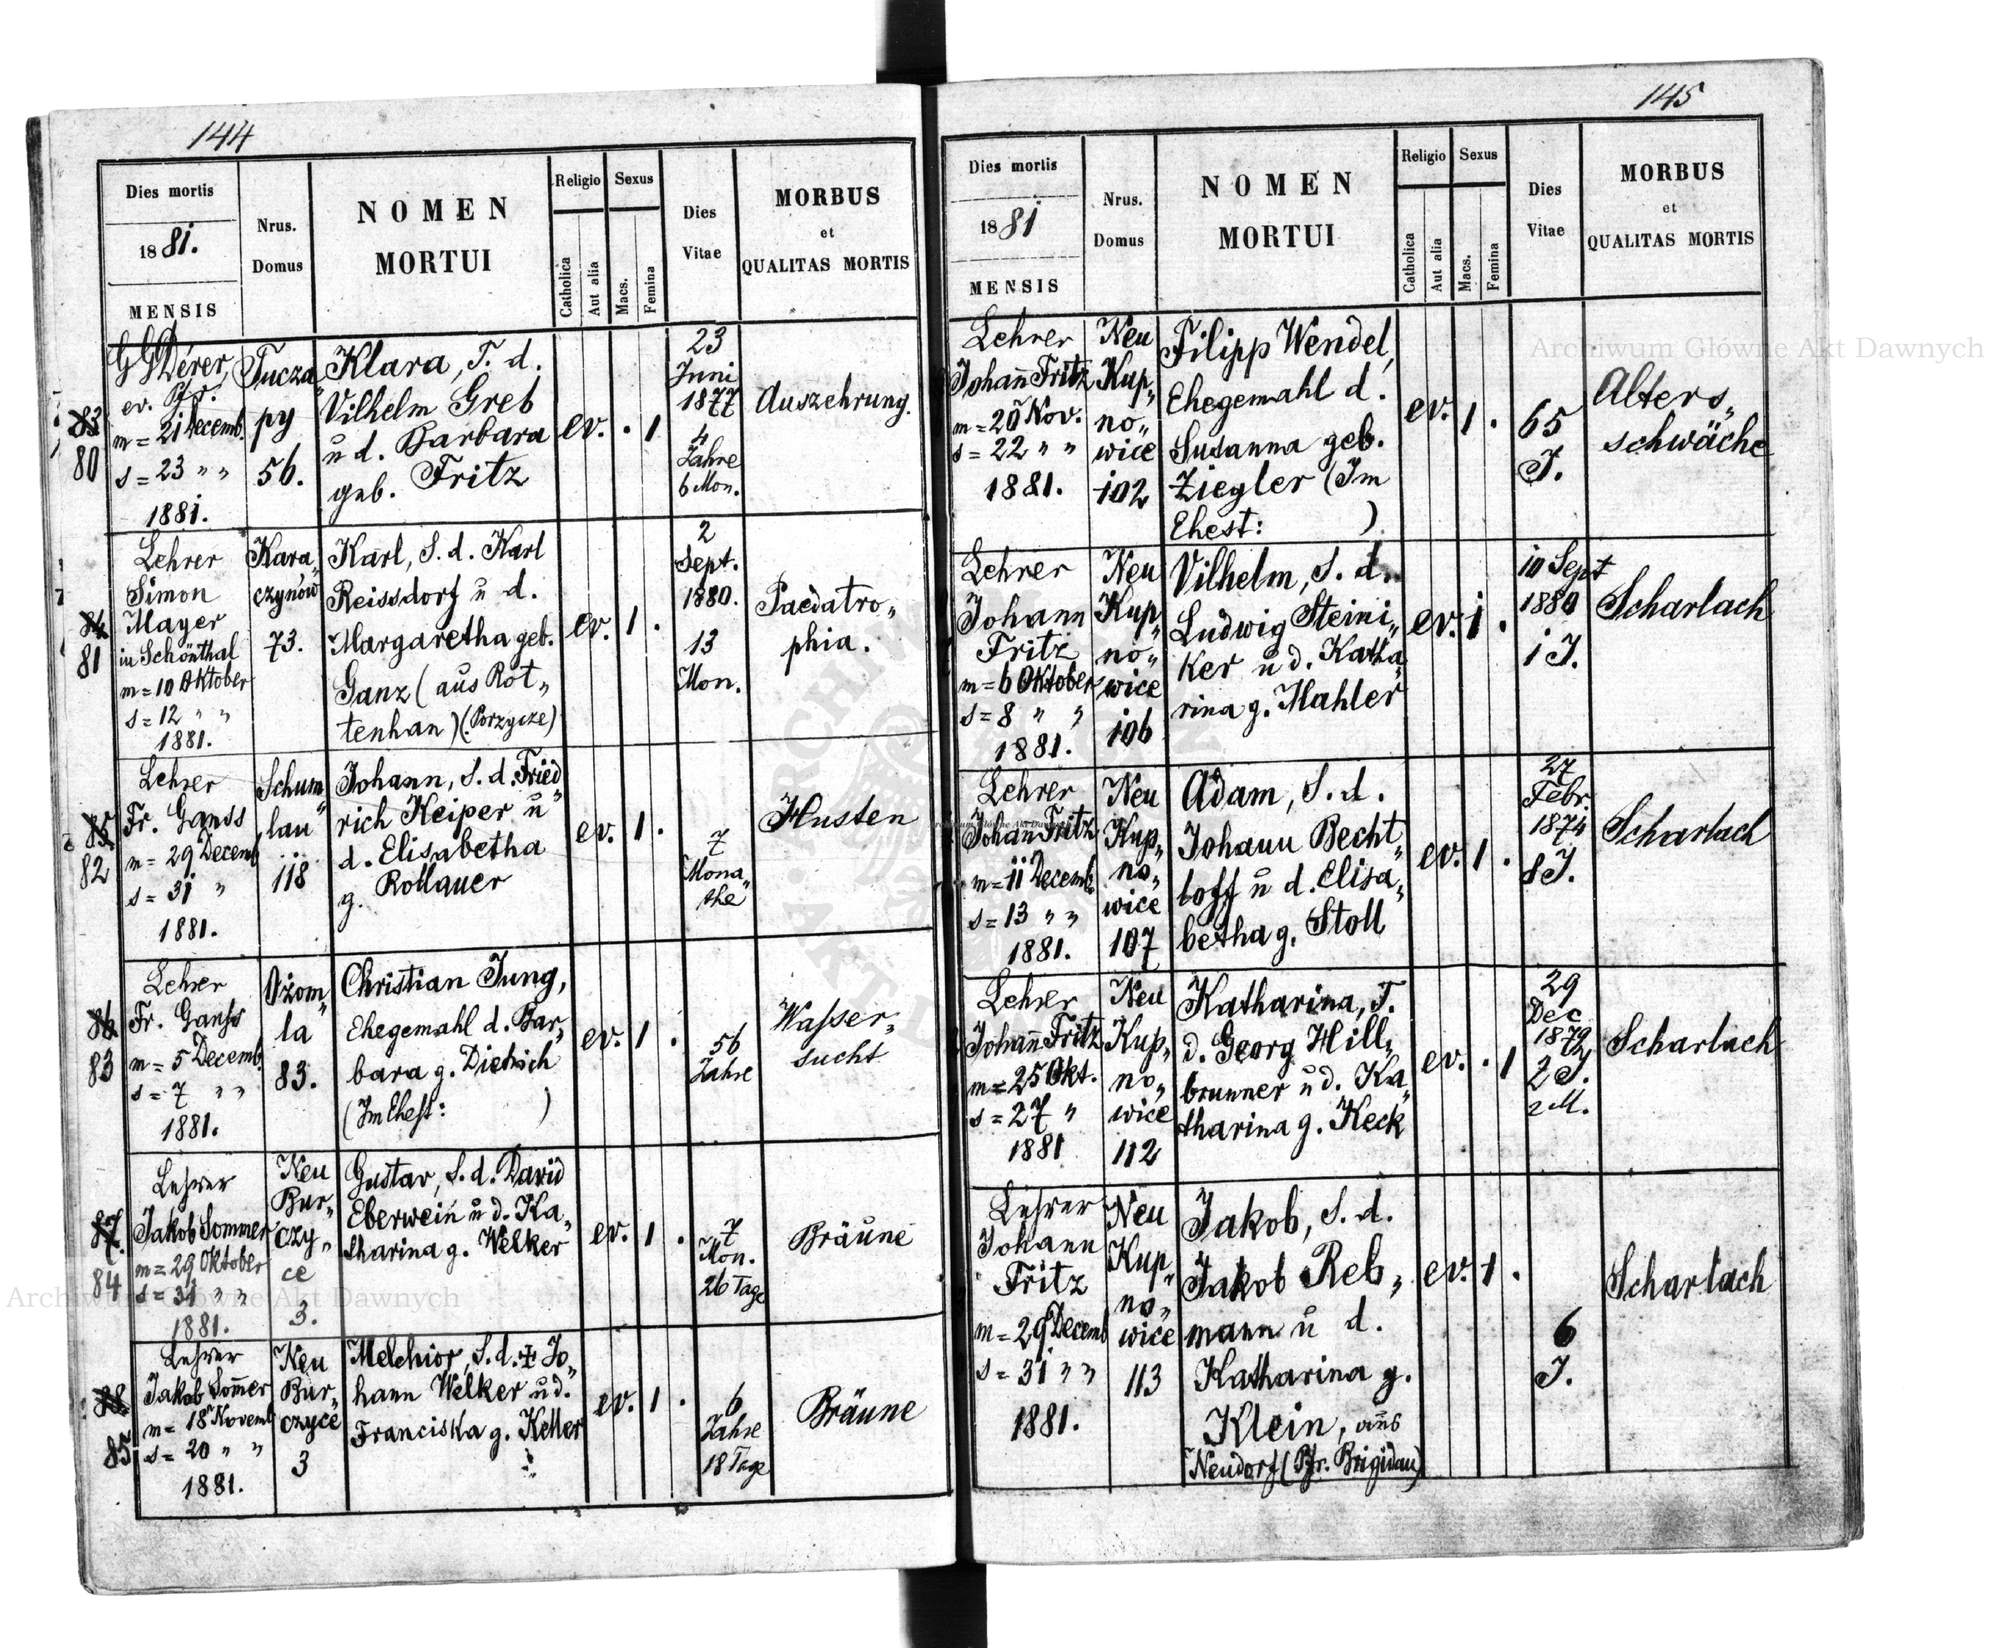 144
Dies mortis
1881.
MENSIS
Nrus.
Domus
NOMEN
MORTUI
Religio
Catholica
Aut alia
Sexus
Macs.
Femina
Dies
Vitae
MORBUS
et
QUALITAS MORTIS
83
80
Dérer,
ev. Pfr.
m = 21 Decemb.
s = 23 " "
1881.
Tucza„
py
56.
Klara, T. d.
Vilhelm Greb
u d. Barbara
geb. Fritz
ev. . 1
23
Juni
1877
4
Jahre
6 Mon.
Auszehrung.
84
81
Lehrer
Simon
Mayer
in Schönthal
m = 10 Oktober
s = 12 " "
1881.
Kara„
czynów
73.
Karl, S. d. Karl
Reissdorf u d.
Margaretha geb.
Ganz (aus Rot„
tenhan) (Porzycze)
ev. 1 .
2
Sept.
1880.
13
Mon.
Paedatro„
phia.
85
82
Lehrer
Fr. Ganss
m = 29 Decemb
s = 31 "
1881.
Schum„
lau
118
Johann, S. d. Fried„
rich Keiper u
d. Elisabetha
g. Rollauer
ev. 1 .
7
Mona„
the
Husten
86
83
Lehrer
Fr. Ganss
m = 5 Decemb.
s = 7 " "
1881.
Ożom„
la
83.
Christian Jung,
Ehegemahl d. Bar„
bara g. Dietrich
(Im Ehest: )
ev. 1 .
56
Jahre
Wasser„
sucht
87.
84
Lehrer
Jakob Sommer
m = 29 Oktober
s = 31 " "
1881.
Neu
Bur„
czy„
ce
3.
Gustav, S. d. David
Eberwein u d. Ka„
tharina g. Welker
ev. 1 .
7
Mon.
26 Tage
Bräune
88
85
Lehrer
Jakob Som̄er
m = 18 Novemb
s = 20 " "
1881.
Neu
Bur„
czyce
3
Melchior, S. d. ‡ Jo„
hann Welker u d.
Franciska g. Keller
ev. 1 .
6
Jahre
18 Tage
Bräune
145
Dies mortis
1881
MENSIS
Nrus.
Domus
NOMEN
MORTUI
Religio
Catholica
Aut alia
Sexus
Macs.
Femina
Dies
Vitae
MORBUS
et
QUALITAS MORTIS
Lehrer
Johan̄ Fritz
m = 20 Nov.
s = 22 " "
1881.
Neu
Kup„
no„
wice
102
Filipp Wendel,
Ehegemahl d.
Susanna geb.
Ziegler (Im
Ehest: )
ev. 1 .
65
J.
Alters„
schwäche
Lehrer
Johann
Fritz
m = 6 Oktober
s = 8 " "
1881.
Neu
Kup„
no„
wice
106
Vilhelm, S. d.
Ludwig Steini„
ker u d. Katha„
rina g. Mahler
ev. 1 .
10 Sept
1880
1 J.
Scharlach
Lehrer
Johan̄ Fritz
m = 11 Decemb.
s = 13 " "
1881.
Neu
Kup„
no„
wice
107
Adam, S. d.
Johann Becht„
loff u d. Elisa„
betha g. Stoll
ev. 1 .
27
Febr.
1874
8 J.
Scharlach
Lehrer
Johan̄ Fritz
m = 25 Okt.
s = 27 "
1881
Neu
Kup„
no„
wice
112
Katharina, T.
d. Georg Hill„
brunner u d. Ka„
tharina g. Keck
ev. . 1
29
Dec
1879
2 J.
2 M.
Scharlach
Lehrer
Johann
Fritz
m = 29 Decemb
s = 31 " "
1881.
Neu
Kup„
no„
wice
113
Jakob, S. d.
Jakob Reb„
mann u d.
Katharina g.
Klein, aus
Neudorf (Pfr. Brigidau)
ev. 1 .
6
J.
Scharlach
Archiwum Główne Akt Dawnych
Archiwum Główne Akt Dawnych
Archiwum Główne Akt Dawnych